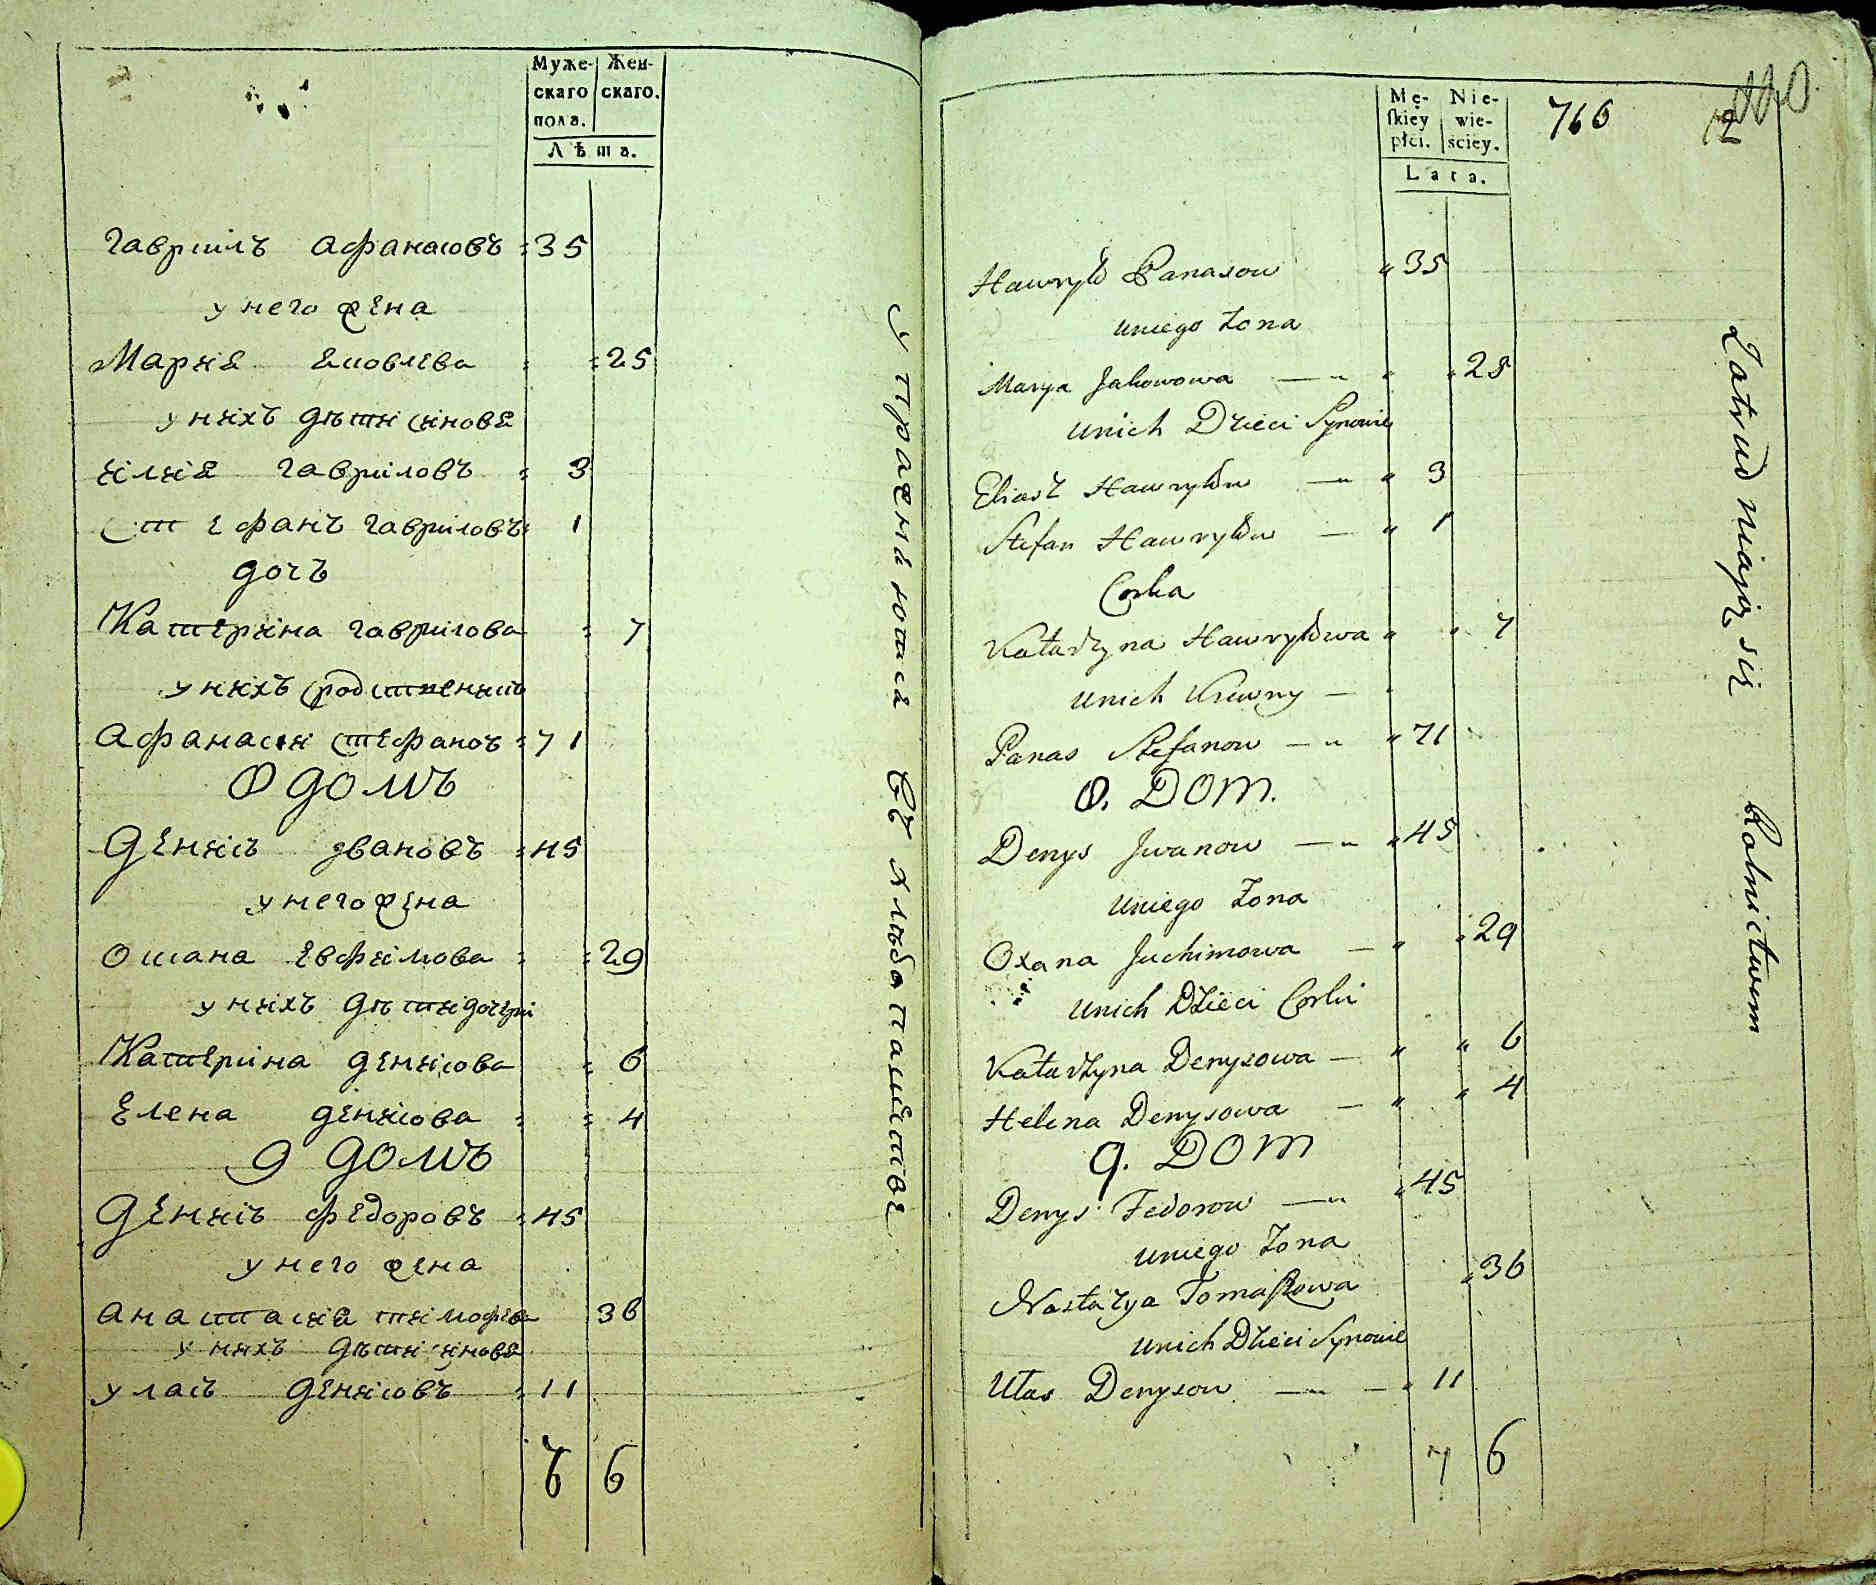 Муже- Жен-
скаго скаго.
пола.
Лѣта.
Гаврилъ Афанасовъ 35
у него жена
Мария Яковлева 25
у нихъ дѣти синовя
илия Гавриловъ 3
Стефанъ Гавриловъ 1
дочь
Катерина Гаврилова 7
у нихъ
Афанасии Стефановъ 71
8 домъ
Денисъ Ивановъ 45
у него жена
Оксана Евфимова 29
у нихъ дѣти дочери
Катерина Денисова 6
Елена Денисова 4
9 домъ
Денисъ Федоровъ 45
у него жена
Анастасия Тимофева 36
у нихъ дѣти синовя
Уласъ Денисовъ 11
6
упражняются въ хлѣбопашестве
Mę- Nie-
skiey wie-
płci. sciey.
Lata.
766
Hawryło Panasow 35
uniego Żona
Marya Jakowowa 25
unich Dzieci Synowie
Eliasz Hawryłow 3
Stefan Hawryłow 1
Corka
Katarzyna Hawryłowa 7
unich Krewny
Panas Stefanow 71
8. DOM.
Denys Jwanow 45
uniego Żona
Oxana Juchimowa 29
unich Dzieci Corki
Katarzyna Denysowa 6
Helena Denysowa 4
9. DOM
Denys Fedorow 45
uniego Żona
Nastazya Tomaszowa 36
unich Dzieci Synowie
Ułas Denysow 11
7 6
Zatrudniaią się Rolnictwem